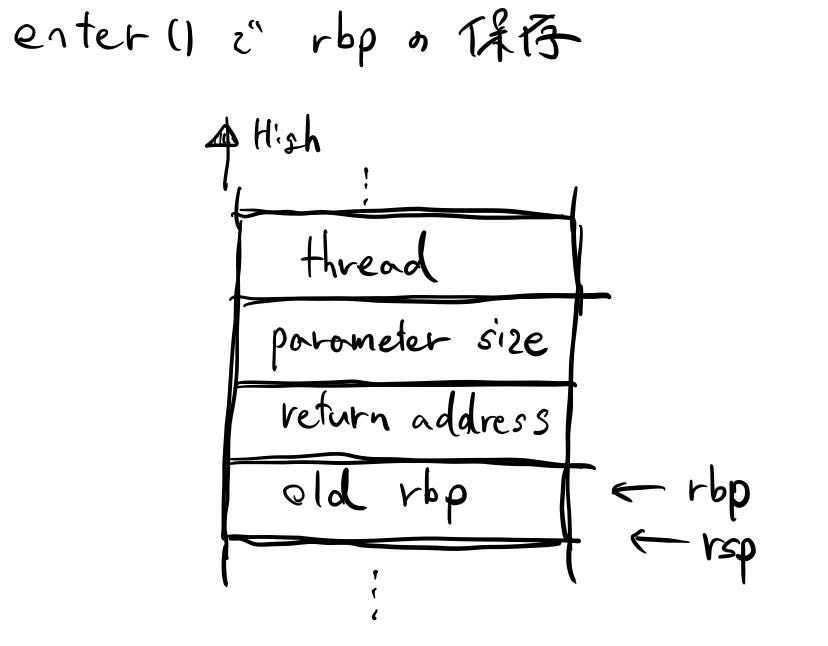 enter() で rbp の 保存
High
thread
parameter size
return address
old rbp ← rbp
← rsp